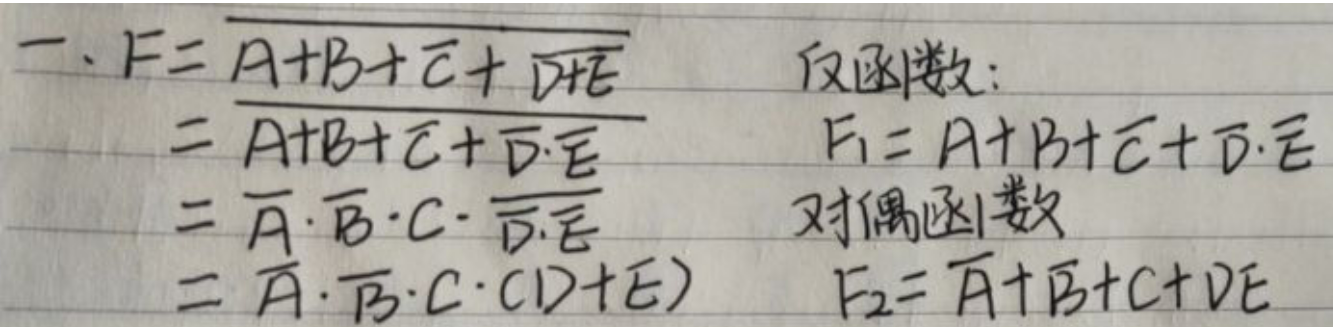 一、F = \overline{A+B+\overline{C}+\overline{D+E}}
= \overline{A+B+\overline{C}+\overline{D}·\overline{E}}
= \overline{A}·\overline{B}·C·\overline{\overline{D}·\overline{E}}
= \overline{A}·\overline{B}·C·(D+E)
反函数:
F₁ = A+B+\overline{C}+\overline{D}·\overline{E}
对偶函数
F₂ = \overline{A}+\overline{B}+C+DE